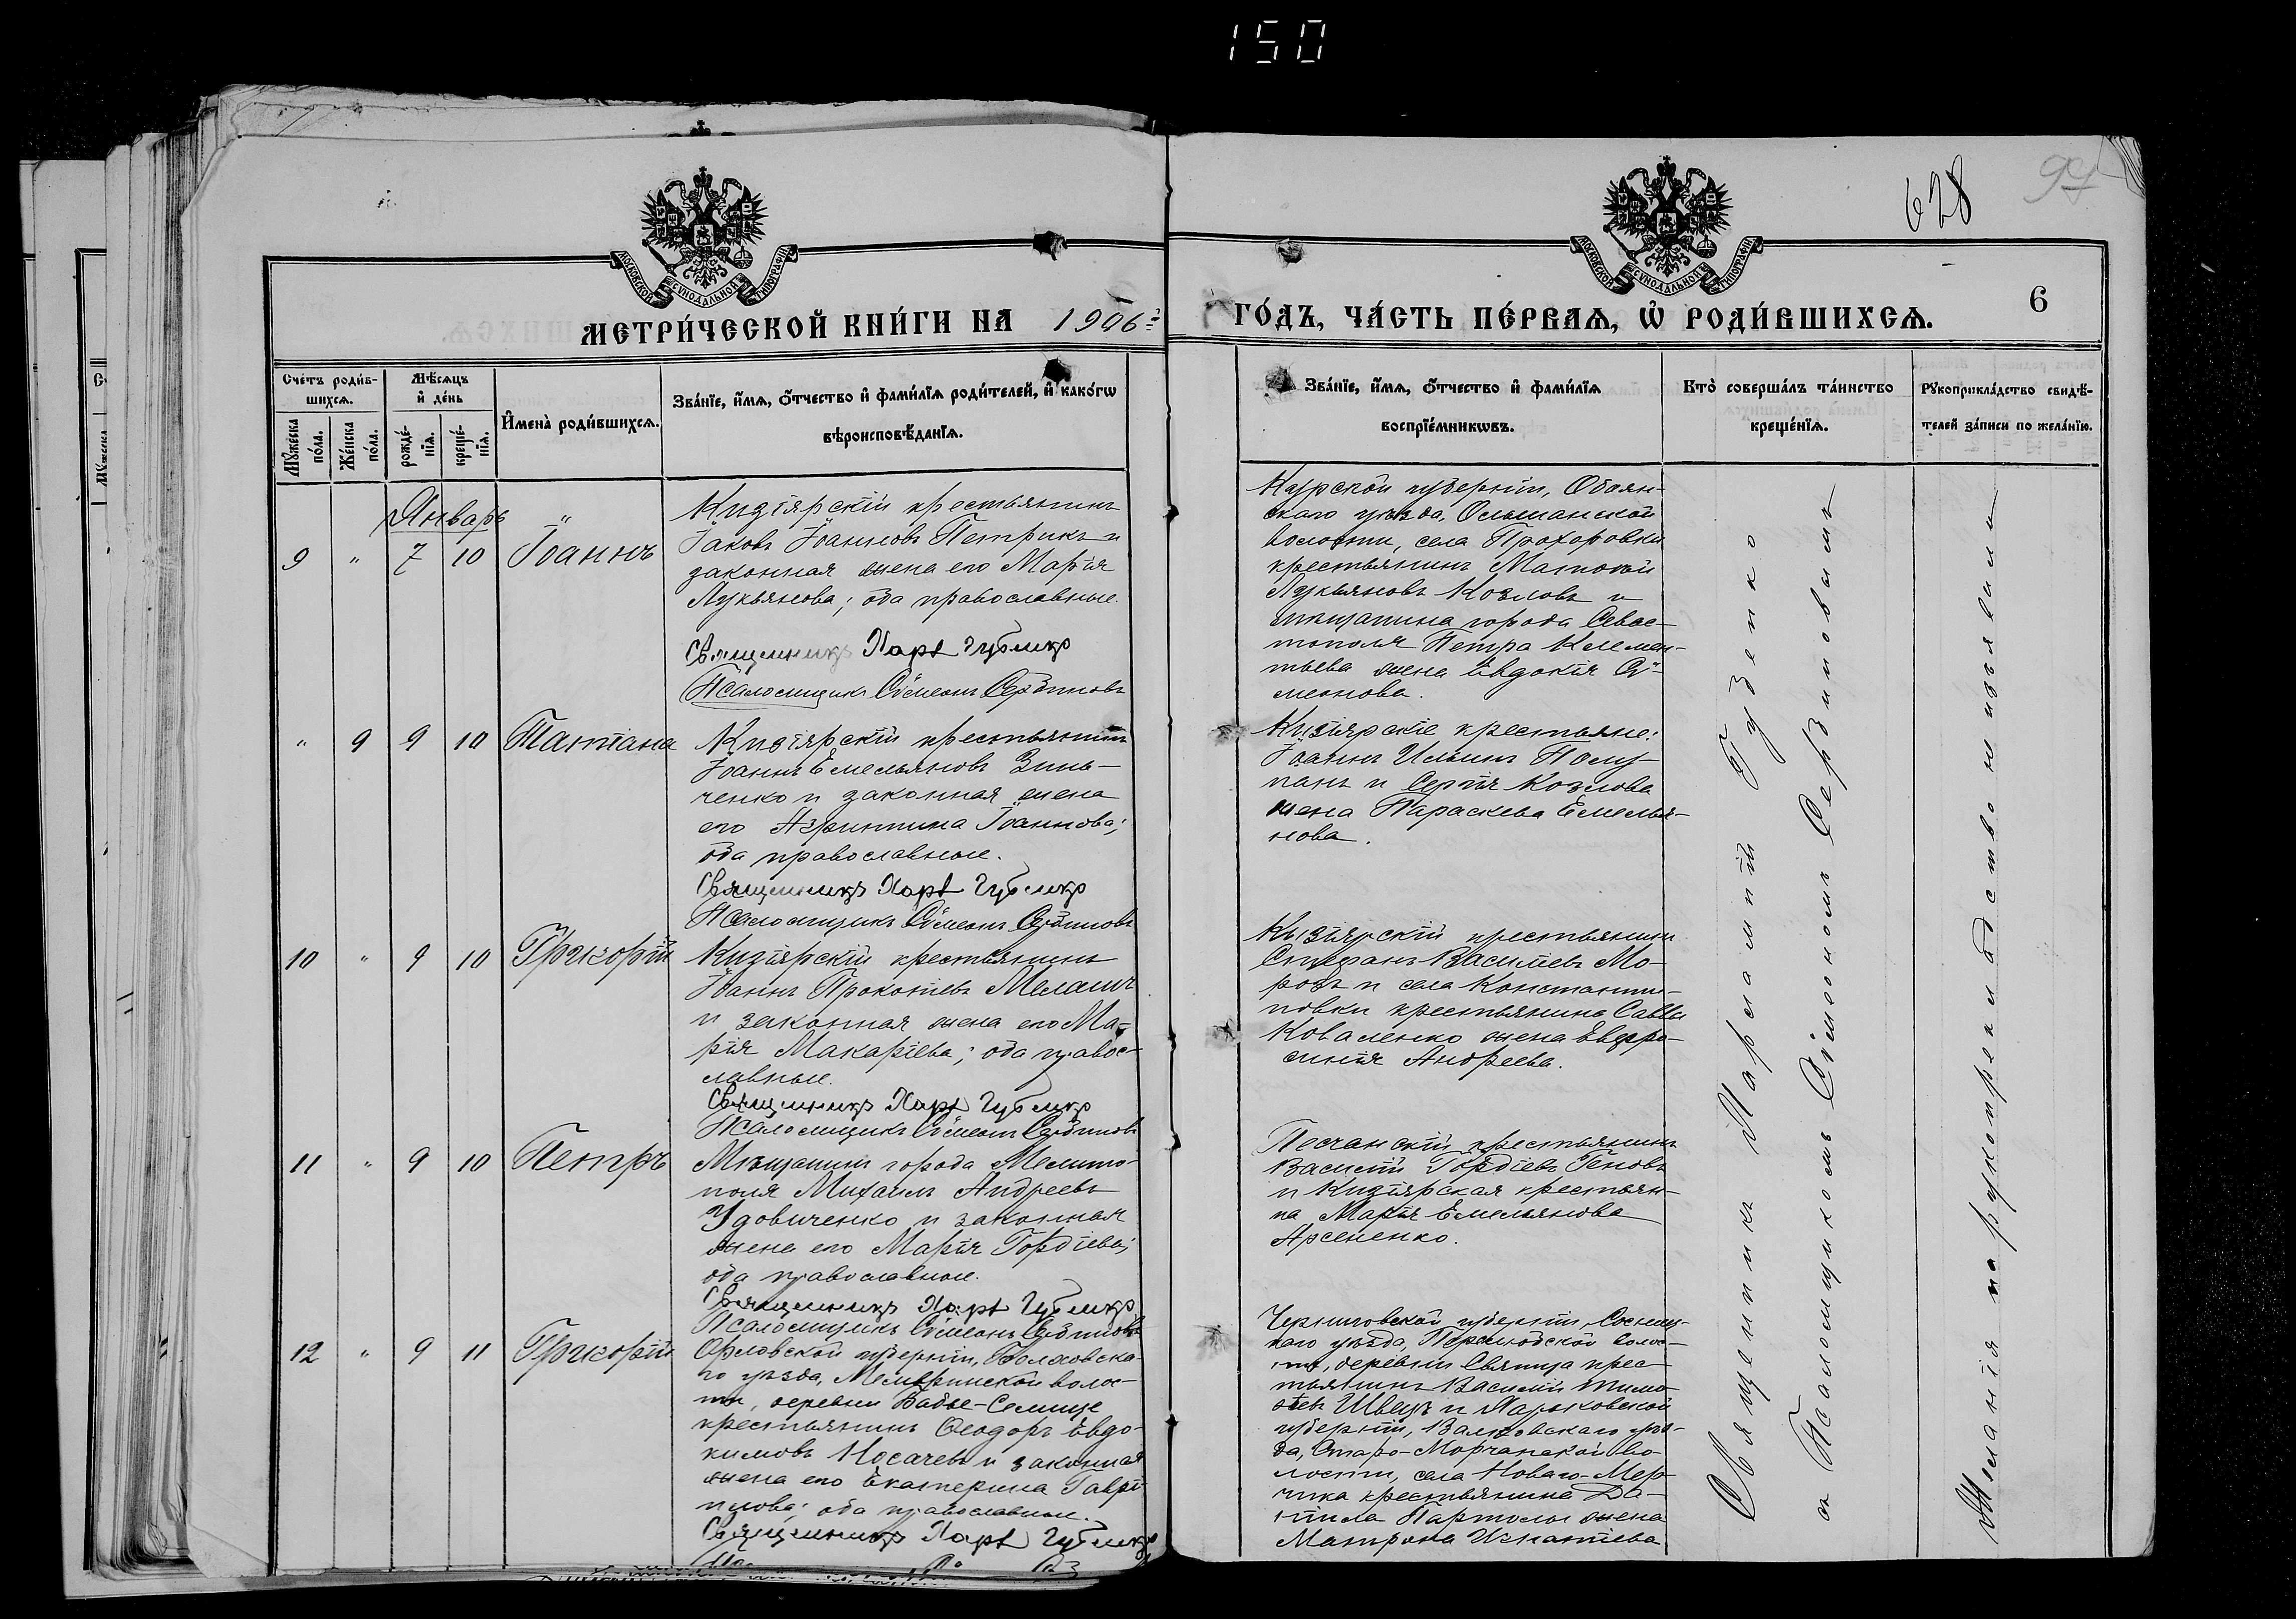 150
628
97
МОСКОВСКОЙ СѴНОДАЛЬНОЙ ТИПОГРАФІИ
МОСКОВСКОЙ СѴНОДАЛЬНОЙ ТИПОГРАФІИ
МЕТРИ́ЧЕСКОЙ КНИ́ГИ НА 1906
ГО́ДЪ, ЧА́СТЬ ПЕ́РВАѦ, Ѡ҆ РОДИ́ВШИХСѦ.
6
Сче́тъ роди́в-
шихсѧ.
Мꙋ́жеска по́ла.
Же́нска по́ла.
Мѣ́сѧцъ
и҆ де́нь
рожде́-
нїѧ.
креще́-
нїѧ.
И҆мена̀ роди́вшихсѧ.
Зва́нїе, и҆́мѧ, ѻ҆́тчество и҆ фами́лїѧ роди́телей, и҆ како́гѡ
вѣроисповѣ́данїѧ.
Зва́нїе, и҆́мѧ, ѻ҆́тчество и҆ фами́лїѧ
воспрїе́мникѡвъ.
Кто̀ соверша́лъ та́инство
креще́нїѧ.
Рꙋкоприкла́дство свидѣ́-
телей за́писи по жела́нїю.
Январь
9 " 7 10 Іоаннъ
Кизіярскій крестьянинъ
Іаковъ Іоанновъ Петрикъ и
законная жена его Марія
Лукьянова; оба православные.
Священникъ Харл. Губенко
Псаломщикъ Сѵмеонъ Сердиновъ
Курской губерніи, Обоян-
скаго уѣзда, Ольшанской
волости, села Прохоровки
крестьянинъ Матѳей
Лукьяновъ Козловъ и
мѣщанина города Севас-
тополя Петра Клемен-
тьева жена Евдокія Сѵ-
меонова.
" 9 9 10 Татіана
Кизіярскій крестьянинъ
Іоаннъ Емельяновъ Зинь-
ченко и законная жена
его Агриппина Іоаннова;
оба православные.
Священникъ Харл. Губенко
Псаломщикъ Сѵмеонъ Сердиновъ
Кизіярскіе крестьяне:
Іоаннъ Ильинъ Полу-
панъ и Сергія Козлова
жена Параскева Емелья-
нова.
10 " 9 10 Григорій
Кизіярскій крестьянинъ
Іоаннъ Прокопіевъ
и законная жена его Ма-
рія Макаріева; оба правос-
лавные.
Священникъ Харл. Губенко
Псаломщикъ Сѵмеонъ Сердиновъ
Кизіярскій крестьянинъ
Стефанъ Василіевъ Мо-
розъ и села Константи-
новки крестьянина Саввы
Коваленко жена Евфро-
синія Андреева.
11 " 9 10 Петръ
Мѣщанинъ города Мелито-
поля Михаилъ Андреевъ
Удовиченко и законная
жена его Марія Гордіева;
оба православные.
Священникъ Харл. Губенко
Псаломщикъ Сѵмеонъ Сердиновъ
Песчанскій крестьянинъ
Василій Гордіевъ
и Кизіярская крестьян-
ка Марія Емельянова
Арсененко.
12 " 9 11 Григорій
Орловской губерніи, Болховска-
го уѣзда, волос-
ти, деревни
крестьянинъ Ѳеодоръ Евдо-
кимовъ Носачевъ и законная
жена его Екатерина Гаврі-
илова; оба православные.
Священникъ Харл. Губенко
Черниговской губерніи, Сосниц-
каго уѣзда, волос-
ти, деревни крес-
тьянинъ Василій Тимо-
ѳеевъ Швецъ и Харьковской
губерніи, Валковскаго уѣз-
да, Старо-Мерчанской во-
лости, села Новаго-Мер-
чика крестьянина Да-
ніила жена
Матрона Игнатіева
Священникъ Харлампій Губенко
съ Псаломщикомъ Сѵмеономъ Сердиновымъ
Желанія на рукоприкладство не изъявили